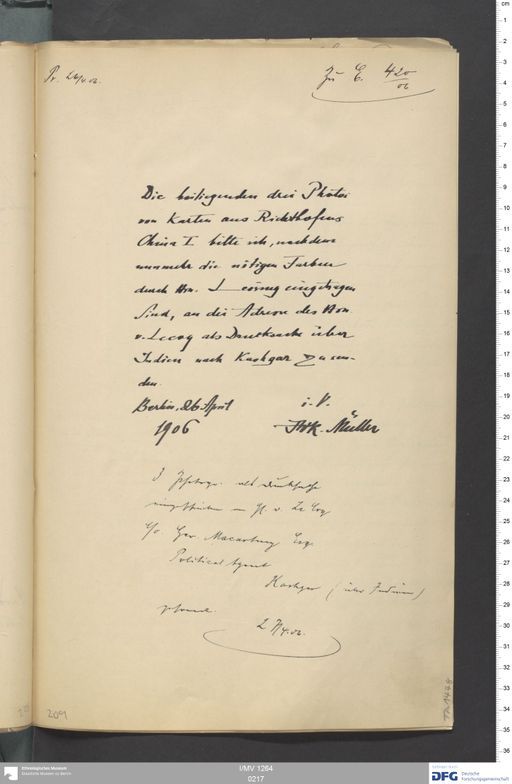 Pr. 26/4.06.
Zu E. 420/06
Die beiliegenden drei Photos
von Karten aus Richthofens
China I bitte ich, nachdem
nunmehr die nötigen Farben
durch Hrn. eingetragen
sind, an die Adresse des Hrn
v. Lecoq als Drucksache über
Indien nach Kashgar zu sen-
den.
Berlin, 26. April
1906
i. V.
FWK. Müller
3 Photogr. als Drucksache
an H. v. Le Coq
c/o Geo. Macartney Esq.
Political Agent
Kashgar (über Indien)
209
I/MV 1264
0217
Ethnologisches Museum
Staatliche Museen zu Berlin
DFG Deutsche
Forschungsgemeinschaft